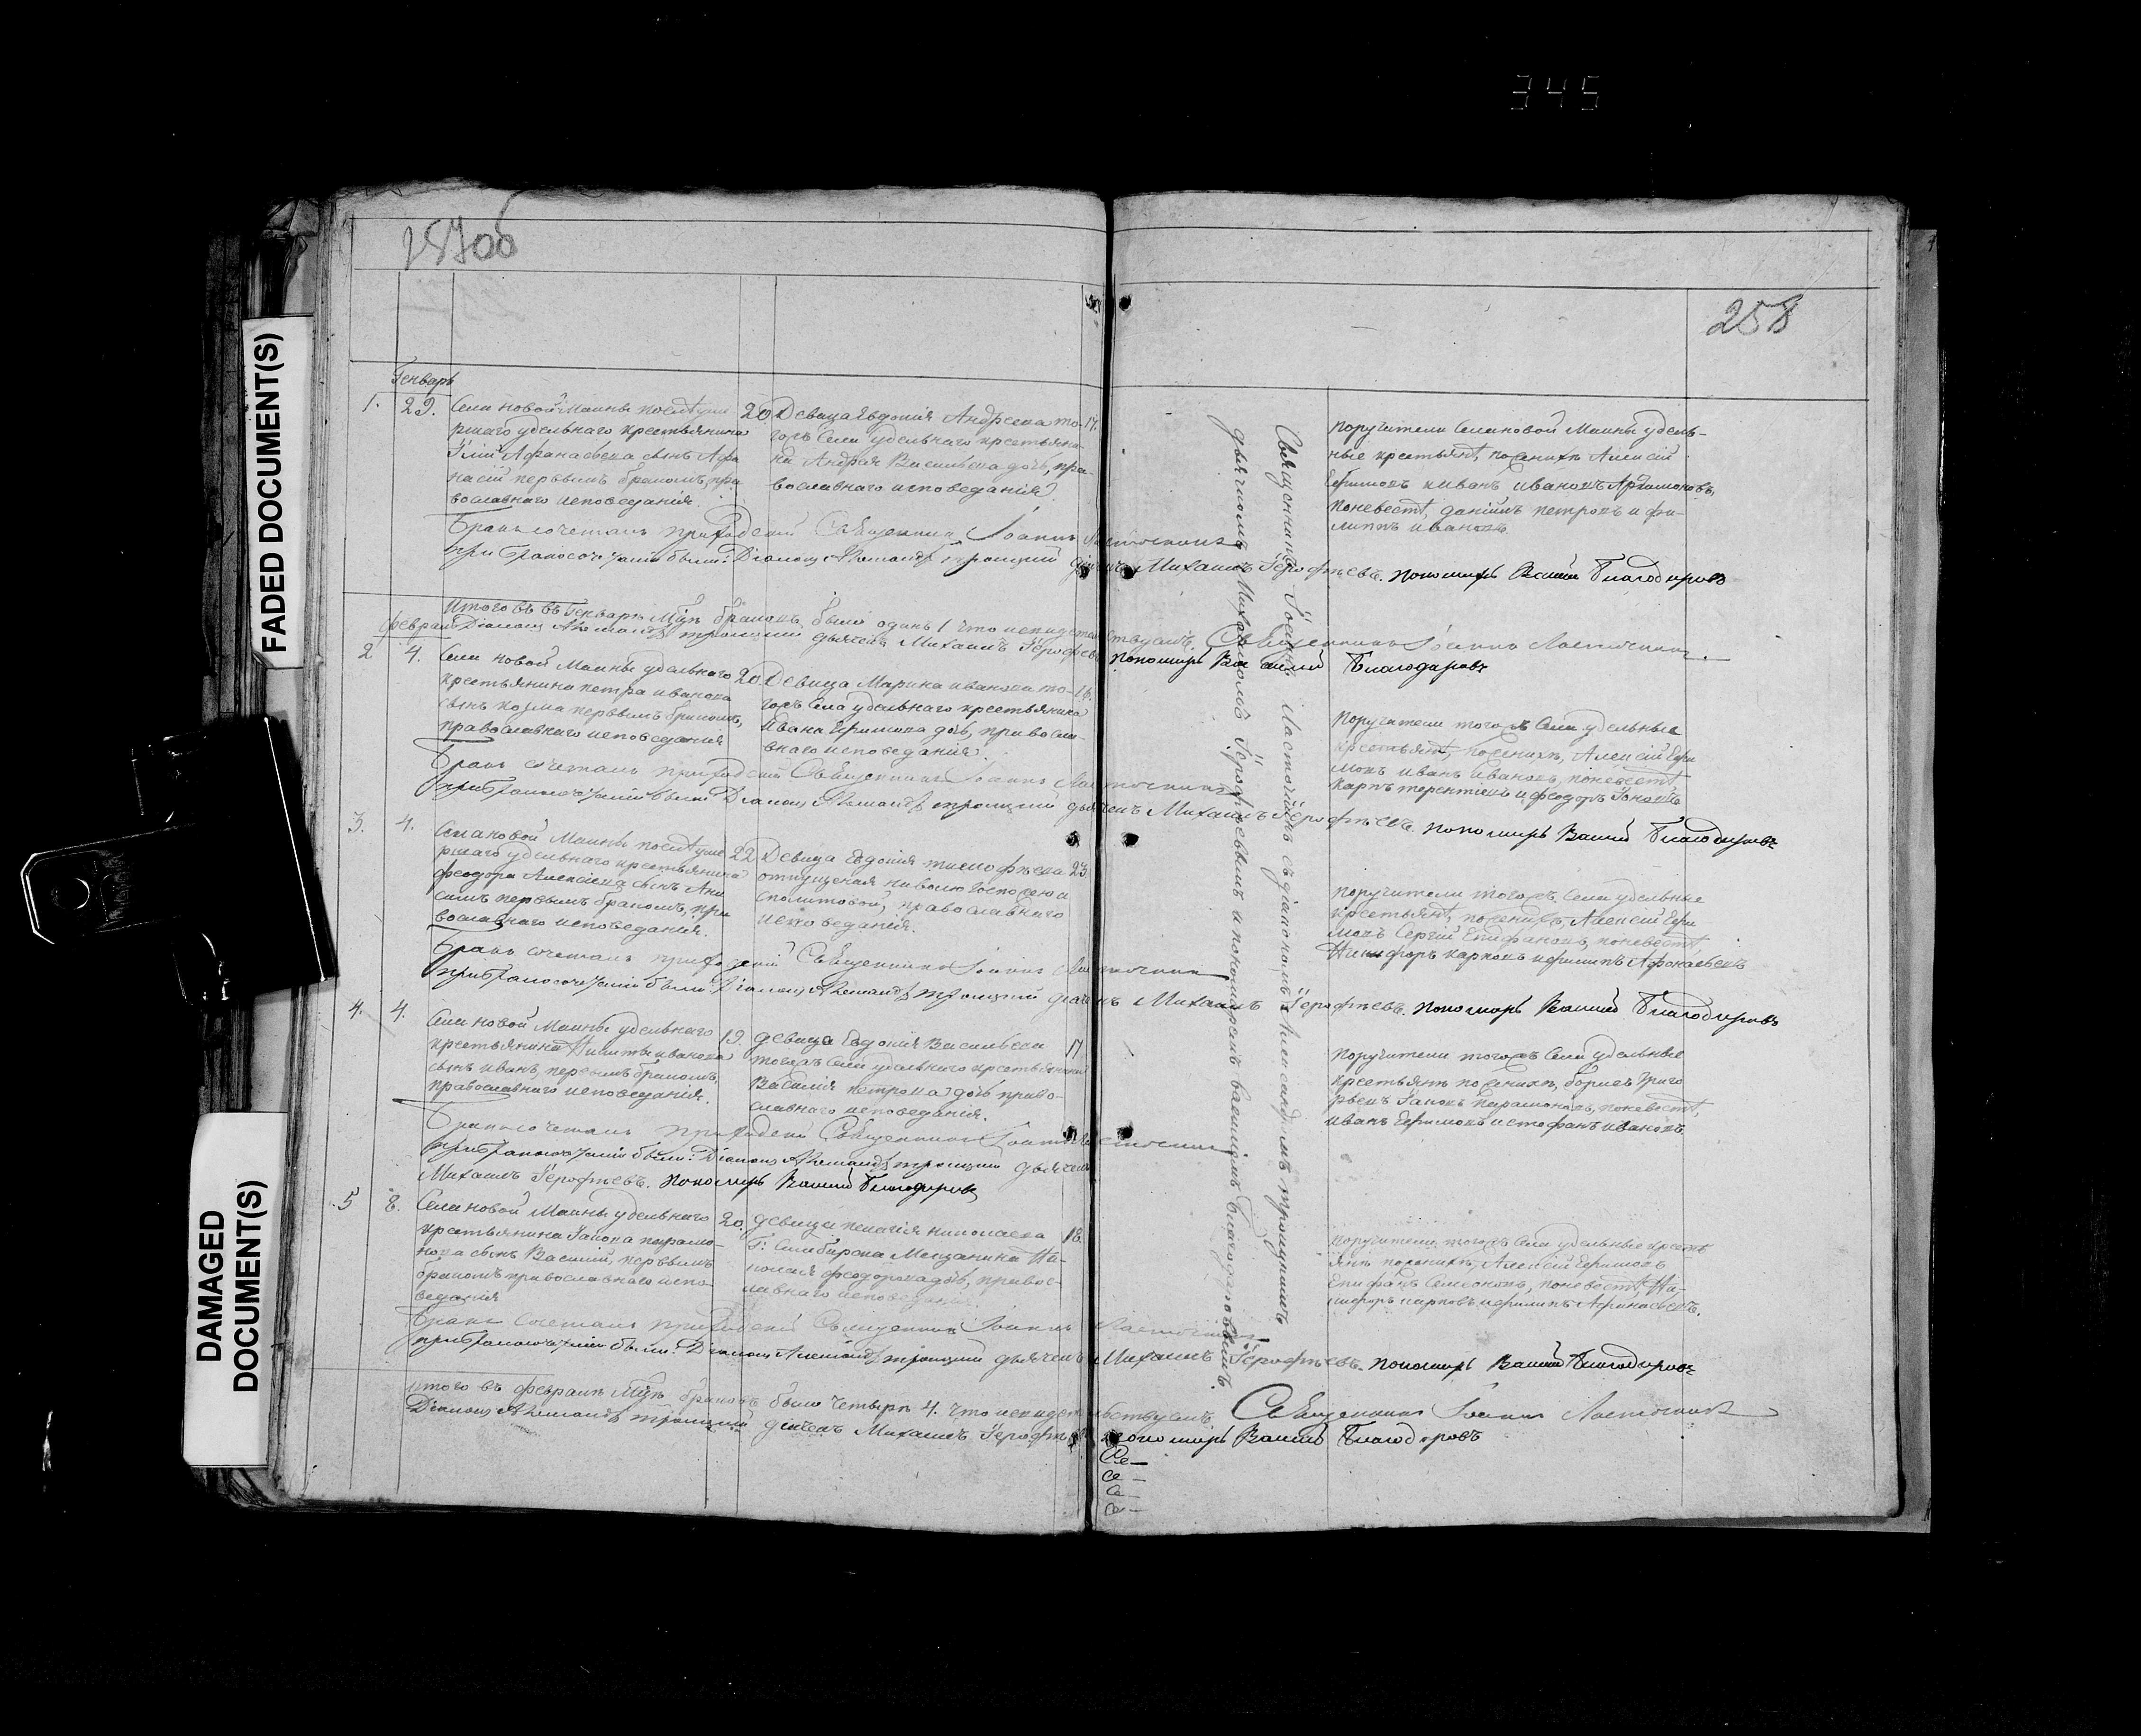 345
257об
258
FADED DOCUMENT(S)
DAMAGED
DOCUMENT(S)
Генварь
1. 29. Села новой Маины после уме
ршаго удельнаго крестьянина
Афанасьева сынъ Афа
насій первымъ бракомъ, пра
вославнаго исповеданія.
20
Девица Евдокія Андреева то-
гожъ Села удельнаго крестьяни-
на Андрея Васильева дочь, пра-
вославнаго исповеданія.
17.
Поручители Села новой Маины удель-
ные крестьянѣ, по женихѣ Алексій
Ефимовъ и Иванъ Ивановъ Артамоновъ,
по невестѣ, Данійлъ Петровъ и Фи-
липпъ Ивановъ.
Бракъ сочеталъ приходскій Священникъ Іоаннъ Ласточкинъ
при бракосочетаніи были: Діаконъ Александръ Троицкій дьячекъ Михаилъ Іерофѣевъ. пономарь Василій Благодаровъ
Итого въ Генварѣ Мцѣ браковъ было одинъ 1 что и свидетельствуемъ. Священникъ Іоаннъ Ласточкинъ.
Діаконъ Александръ Троицкій дьячекъ Михаилъ Іерофѣевъ пономарь Василій Благодаровъ
Февраль
2 4. Села новой Маины удельнаго
крестьянина Петра Иванова
сынъ Козма первымъ бракомъ,
православнаго исповеданія
20.
Девица Марина Иванова то-
гожъ Села удельнаго крестьянина
Ивана Ефимова дочь, правосла-
внаго исповеданія.
16.
Поручители тогожъ Села удельные
крестьянѣ, по женихѣ, Алексій Ефи
мовъ Иванъ Ивановъ, по невестѣ
Карпъ Терентіевъ и Феодоръ
Бракъ сочеталъ приходскій Священникъ Іоаннъ Ласточкинъ
при бракосочетаніи были: Діаконъ Александръ Троицкій дьячекъ Михаилъ Іерофѣевъ. пономарь Василій Благодаровъ
3. 4. Села новой Маины после уме
ршаго удельнаго крестьянина
Феодора Алексіева сынъ Ани
симъ первымъ бракомъ, пра
вославнаго исповеданія.
22
Девица Евдокія Тимофѣева
отпущеная на волю Госпожею
православнаго
исповеданія.
23
Поручители тогожъ Села удельные
крестьянѣ, по женихѣ, Алексій Ефи
мовъ Сергій Епифановъ, по невестѣ,
Никифоръ Карповъ и Филипъ Афонасьевъ
Бракъ сочеталъ приходскій Священникъ Іоаннъ Ласточкинъ
при бракосочетаніи были: Діаконъ Александръ Троицкій дьячекъ Михаилъ Іерофѣевъ. пономарь Василій Благодаровъ
4. 4. Села новой Маины удельнаго
крестьянина Никиты Иванова
сынъ Иванъ, первымъ бракомъ,
православнаго исповеданія.
19.
девица Евдокія Васильева
тогожъ Села удельнаго крестьянина
Василія Петрова дочь право-
славнаго исповеданія.
17
Поручители тогожъ Села удельные
крестьянѣ по женихѣ, Борисъ Григо
рьевъ Іаковъ Парамоновъ, по невестѣ,
Иванъ Ефимовъ и Стефанъ Ивановъ.
Бракъ сочеталъ приходскій Священникъ Іоаннъ Ласточкинъ
при бракосочетаніи были: Діаконъ Александръ Троицкій дьячекъ
Михаилъ Іерофѣевъ. пономарь Василій Благодаровъ
5 8. Села новой Маины удельнаго
крестьянина Іакова Парамо-
нова сынъ Василій, первымъ
бракомъ православнаго испо-
веданія
20.
девица Пелагія Николаева
Г: Симбирска Мещанина Ни-
колая Феодорова дочь, правос-
лавнаго исповеданія.
18.
Поручители тогожъ Села удельные крест
янѣ по женихѣ, Алексій Ефимовъ
Епифанъ Семеоновъ, по невестѣ, Ни-
кифоръ Карповъ и Филипъ Афанасьевъ.
Бракъ сочеталъ приходскій Священникъ Іоаннъ Ласточкинъ
при бракосочетаніи были: Діаконъ Александръ Троицкій дьячекъ Михаилъ Іерофѣевъ. пономарь Василій Благодаровъ
Итого въ Февралѣ Мцѣ браковъ было четыре 4. что и свидетельствуемъ. Священникъ Іоаннъ Ласточкинъ
Діаконъ Александръ Троицкій дьячекъ Михаилъ Іерофѣевъ пономарь Василій Благодаровъ
Священникъ Іоаннъ Ласточкинъ съ діакономъ Александромъ Троицкимъ
дьячкомъ Михаиломъ Іерофѣевымъ и пономаремъ Василіемъ Благодаровымъ.